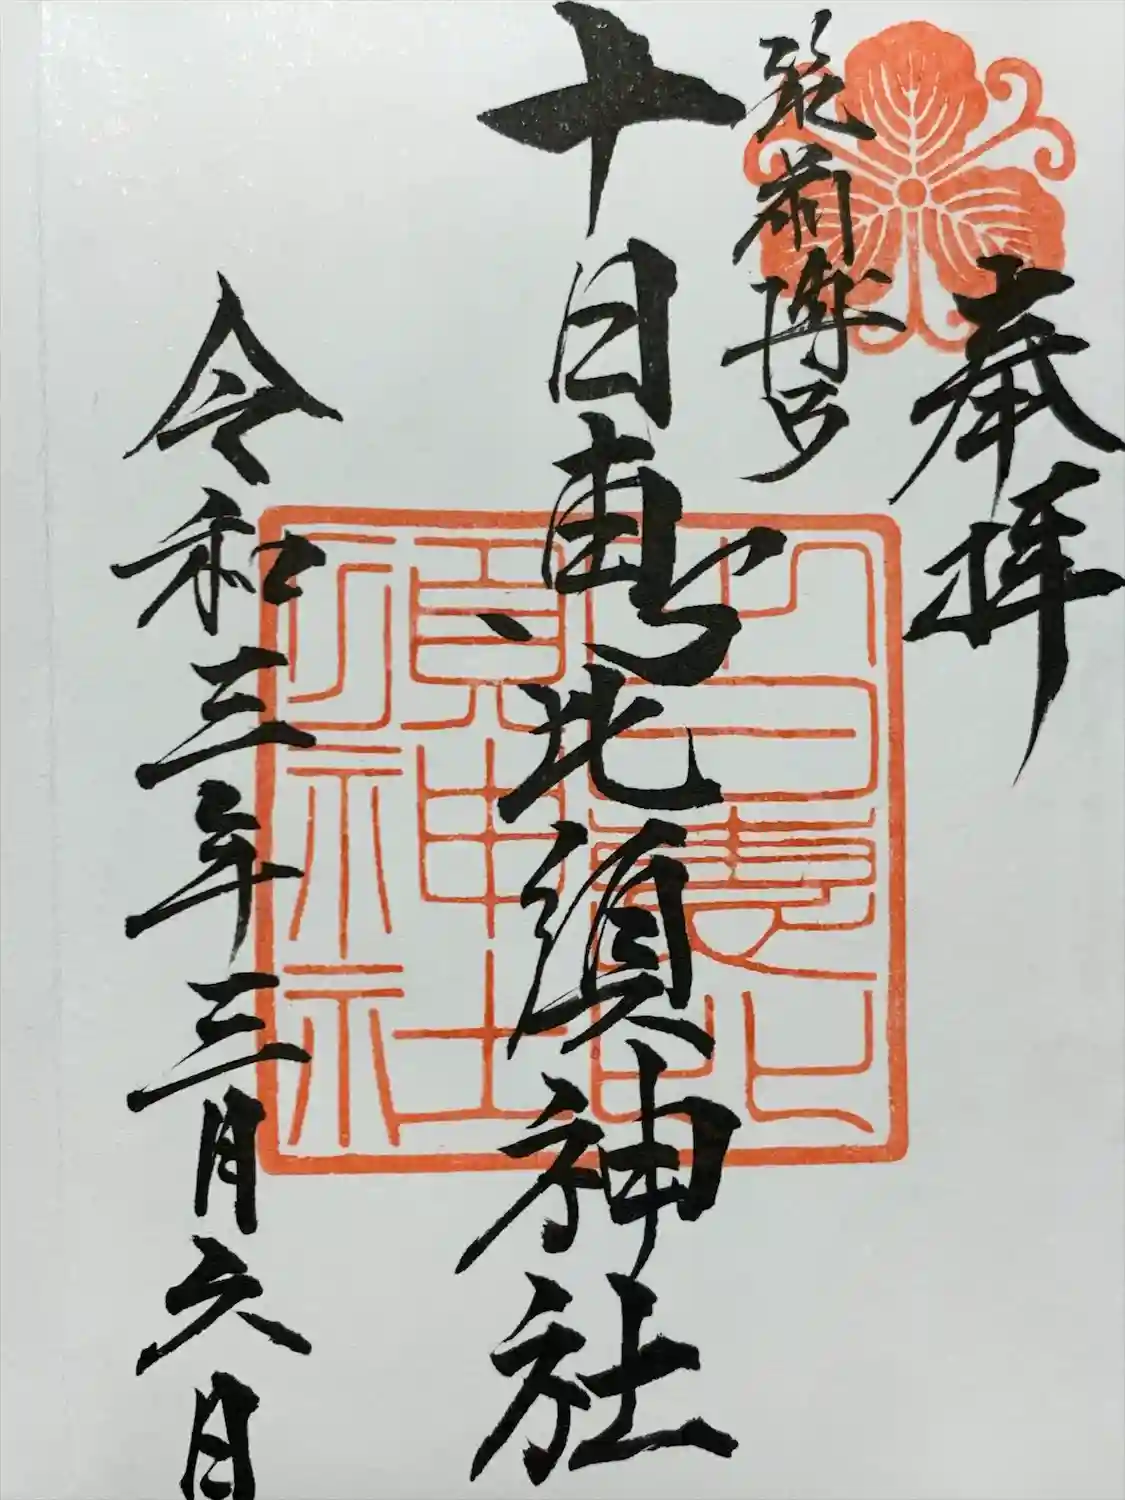 奉拝
筑前博多
十日恵比須神社
十日恵比須神社
令和三年三月六日